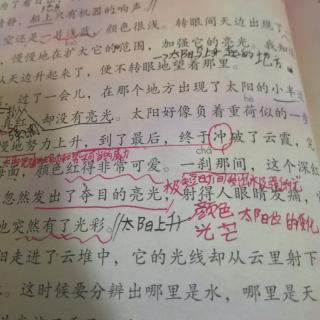 为了看日
船上只有机器的响声
时静,
空还是一片浅蓝,颜色很浅。转眼间天边出现了
慢慢地在扩大它的范围,加强它的亮光。我知
太阳升起的地方
从天边升起来了,便不转眼地望着那里。
过了一会儿,在那个地方出现了太阳的小半
红,却没有亮光。太阳好像负着重荷似的一步
慢地努力上升,到了最后,终于冲破了云霞,完
chā
海面,颜色红得非常可爱。一刹那间,这个深红
忽然发出了夺目的亮光,射得人眼睛发痛,
也突然有了光彩。 //太阳上升
颜色
光芒
太阳的变化
阳走进了云堆中,它的光线却从云里射下
。这时候要分辨出哪里是水,哪里是天